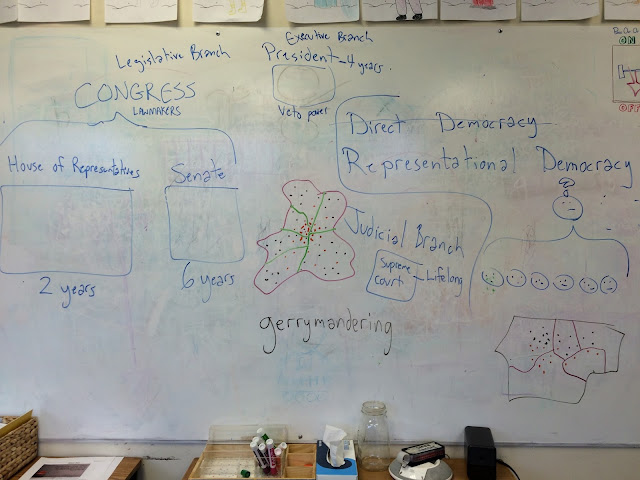 Legislative Branch
CONGRESS
LAWMAKERS
House of Representatives
2 years
Senate
6 years
Executive Branch
President - 4 years
Veto power
Direct Democracy
Representational Democracy
Judicial Branch
Supreme
Court
Lifelong
gerrymandering
ON
OFF